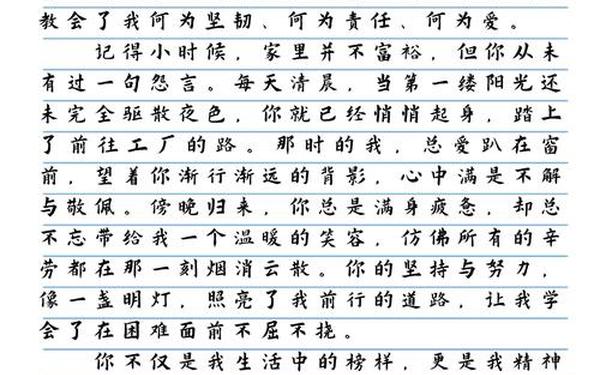 教会了我何为坚韧、何为责任、何为爱。
记得小时候，家里并不富裕，但你从未
有过一句怨言。每天清晨，当第一缕阳光还
未完全驱散夜色，你就已经悄悄起身，踏上
了前往工厂的路。那时的我，总爱趴在窗
前，望着你渐行渐远的背影，心中满是不解
与敬佩。傍晚归来，你总是满身疲惫，却总
不忘带给我一个温暖的笑容，仿佛所有的辛
劳都在那一刻烟消云散。你的坚持与努力，
像一盏明灯，照亮了我前行的道路，让我学
会了在困难面前不屈不挠。
你不仅是我生活中的榜样，更是我精神